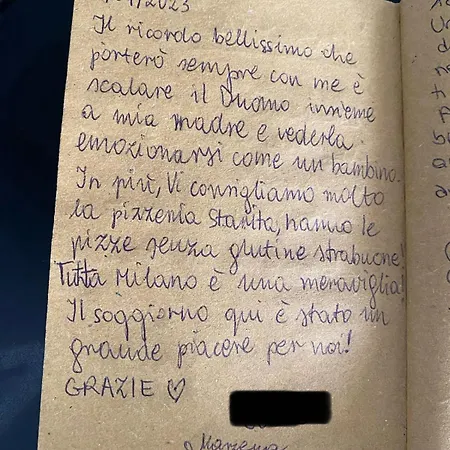 /2023
Il ricordo bellissimo che
porterò sempre con me è
scalare il Duomo insieme
a mia madre e vederla
emozionarsi come un bambino.
In più, Vi consigliamo molto
la pizzeria Starita, hanno le
pizze senza glutine strabuone!
Tutta Milano è una meraviglia!
Il soggiorno qui è stato un
grande piacere per noi!
GRAZIE ♡